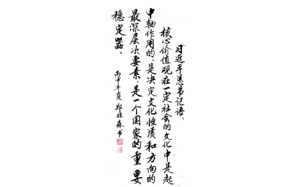 习近平总书记语：
核心价值观在一定社会的文化中是起
中轴作用的，是决定文化性质和方向的
最深层次要素，是一个国家的重要
稳定器。
丙申年夏